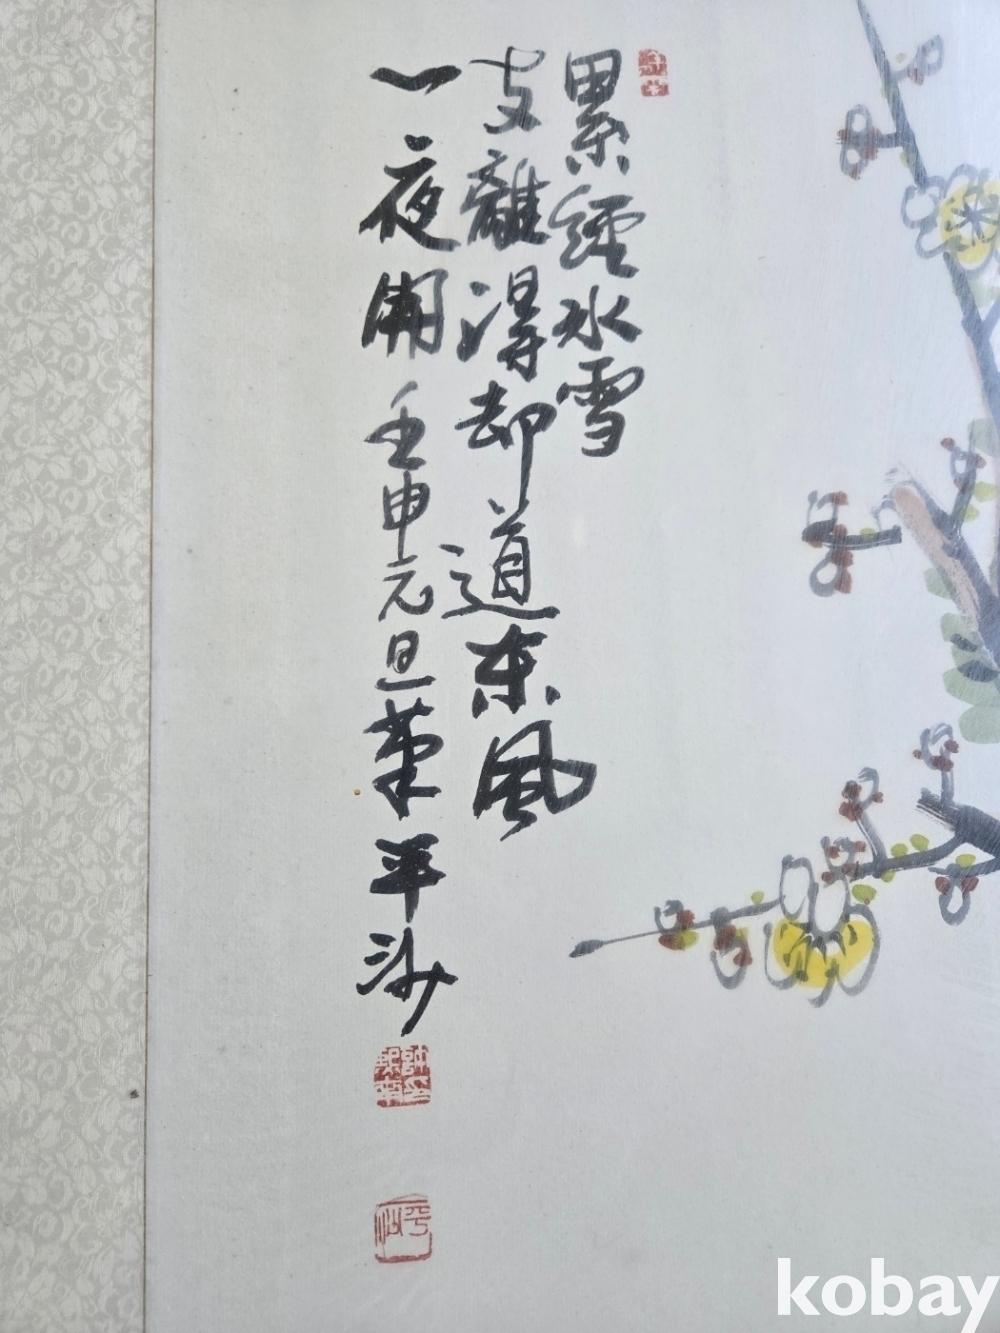 累經氷雪
支離得却道东風
一夜開壬申元旦筆平沙
kobay